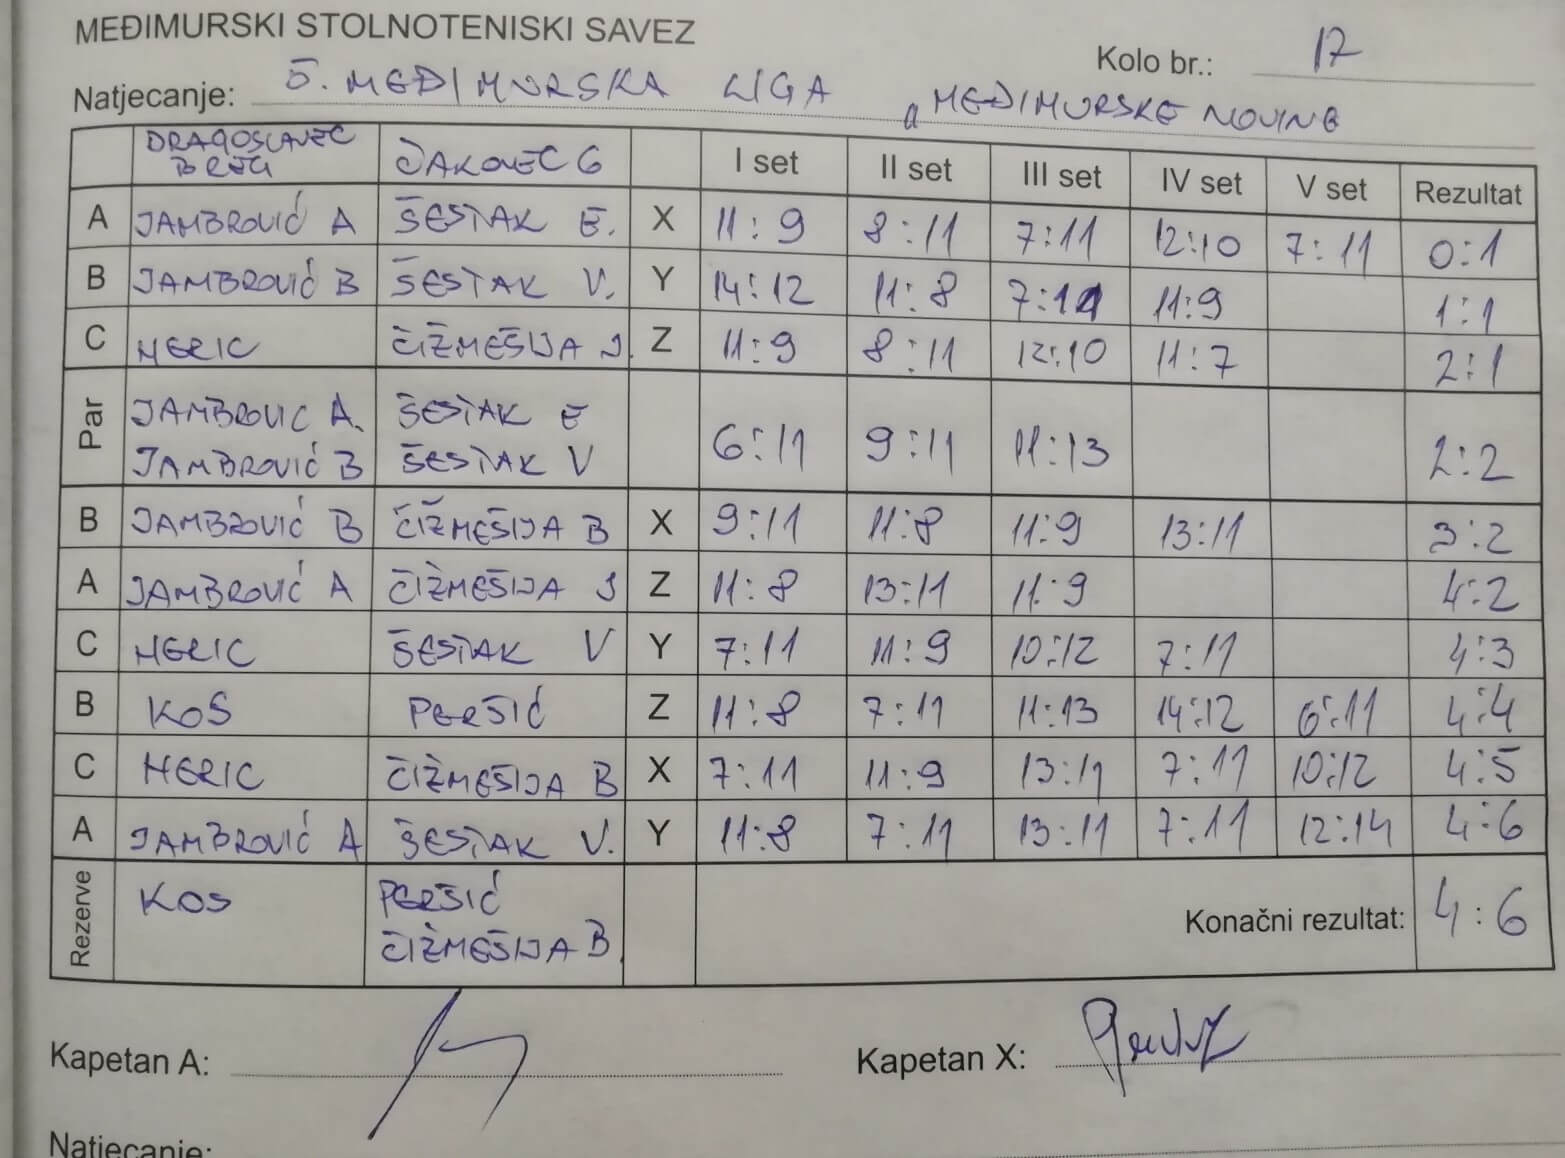 MEĐIMURSKI STOLNOTENISKI SAVEZ
Kolo br.: 17
Natjecanje: 5. MEĐIMURSKA LIGA "MEĐIMURSKE NOVINE
DRAGOSLAVEC BREG ČAKOVEC 6 I set II set III set IV set V set Rezultat
A JAMBROVIĆ A ŠESTAK E. X 11:9 8:11 7:11 12:10 7:11 0:1
B JAMBROVIĆ B ŠESTAK V. Y 14:12 11:8 7:11 11:9 1:1
C HERIC ČIŽMEŠIJA J. Z 11:9 8:11 12:10 11:7 2:1
Par JAMBROVIC A. ŠESTAK E
JAMBROVIĆ B ŠESTAK V 6:11 9:11 11:13 2:2
B JAMBROVIĆ B ČIŽMEŠIJA B X 9:11 11:8 11:9 13:11 3:2
A JAMBROVIĆ A ČIŽMEŠIJA J Z 11:8 13:11 11:9 4:2
C HERIC ŠESTAK V Y 7:11 11:9 10:12 7:11 4:3
B KOS PERŠIĆ Z 11:8 7:11 11:13 14:12 6:11 4:4
C HERIC ČIŽMEŠIJA B X 7:11 11:9 13:11 7:11 10:12 4:5
A JAMBROVIĆ A ŠESTAK V. Y 11:8 7:11 13:11 7:11 12:14 4:6
Rezerve KOS PERŠIĆ
ČIŽMEŠIJA B Konačni rezultat: 4:6
Kapetan A: Kapetan X:
Natjecanje: